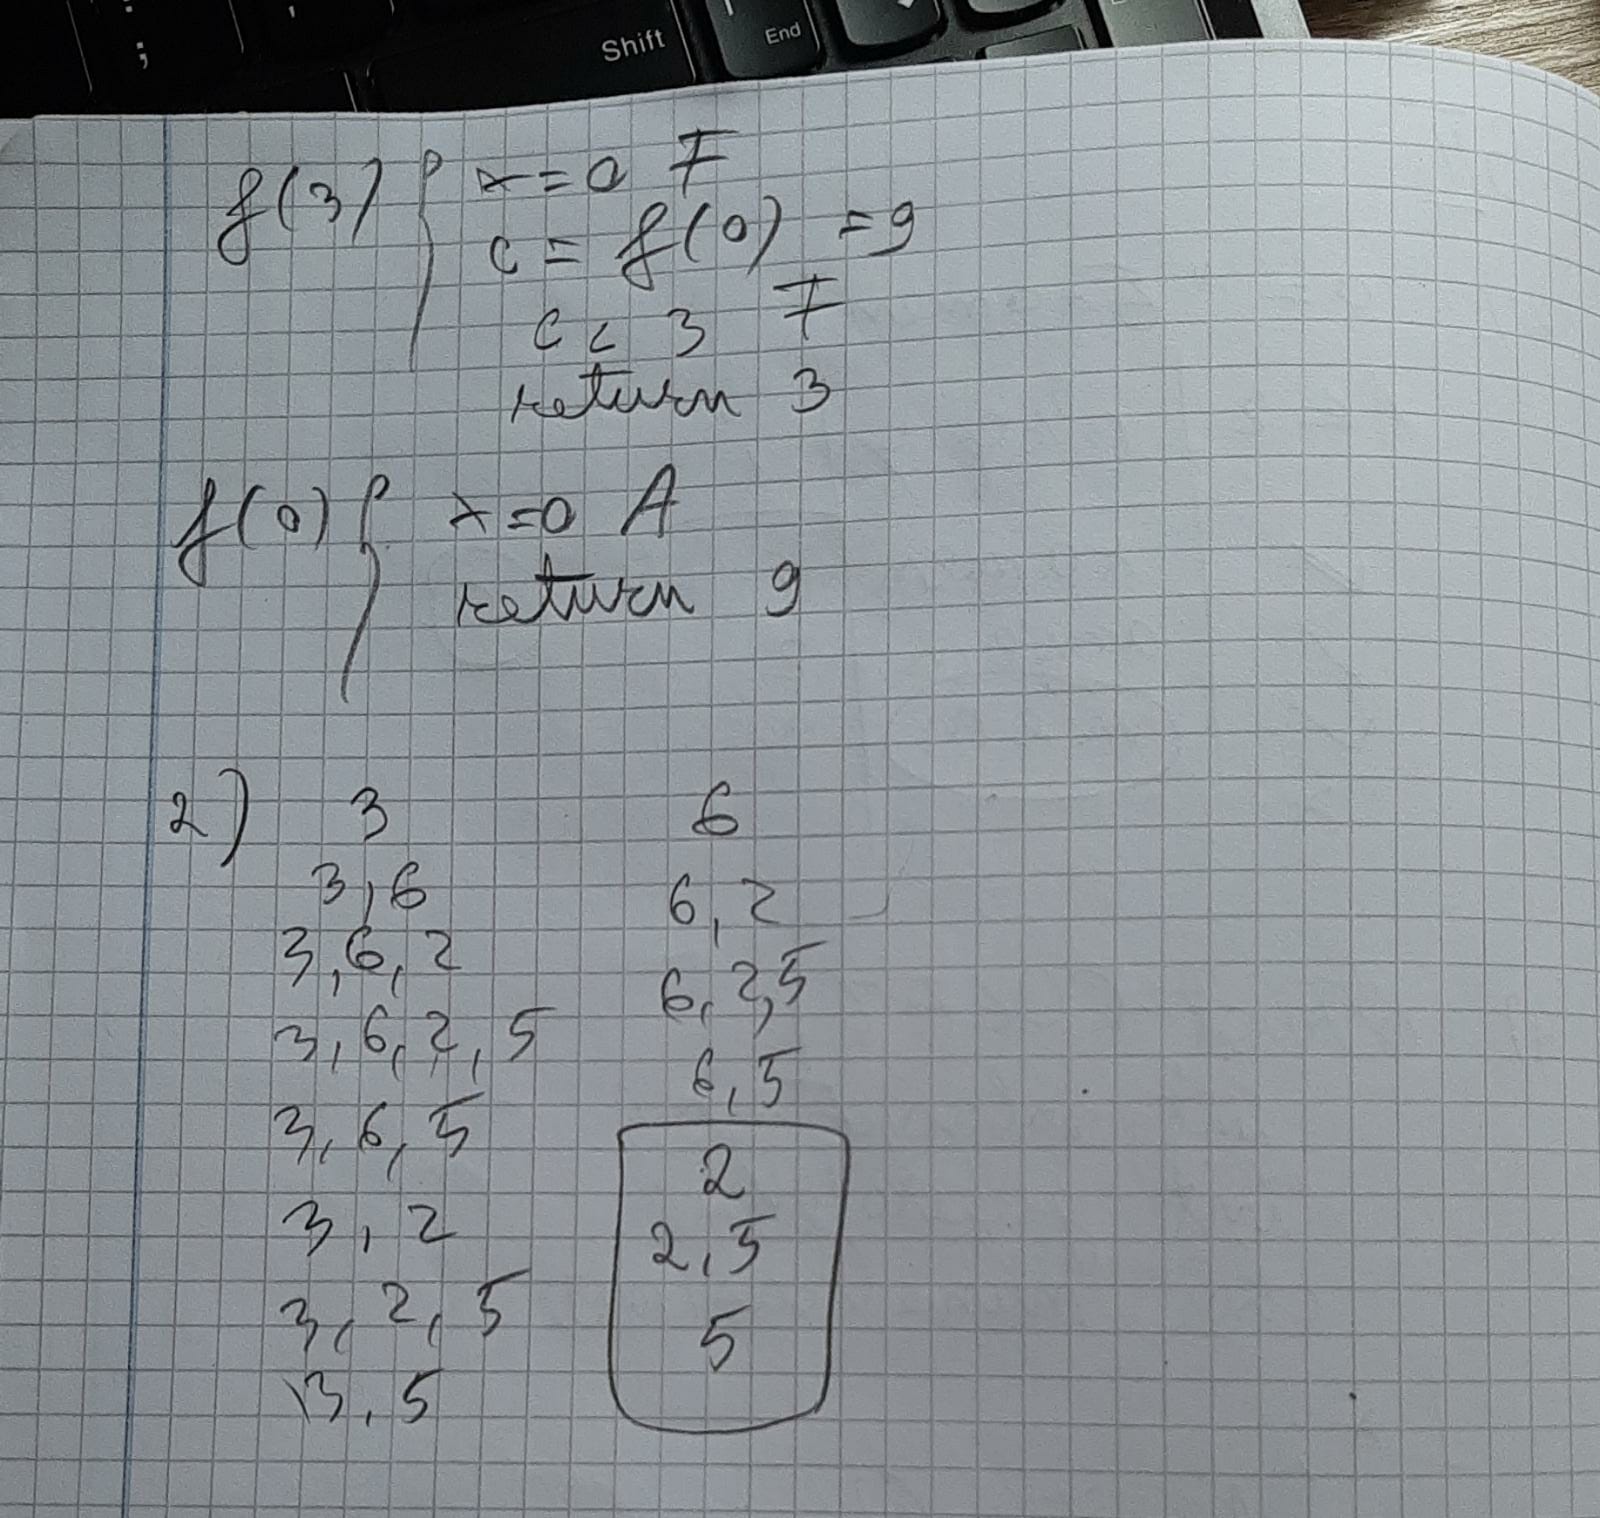 ;
Shift
End
f(3) { x=0 F
c = f(0) = 9
c < 3 F
return 3
f(0) { x=0 A
return 9
2) 3
3,6
3,6,2
3,6,2,5
3,6,5
3,2
3,2,5
3,5
6
6,2
6,2,5
6,5
2
2,5
5